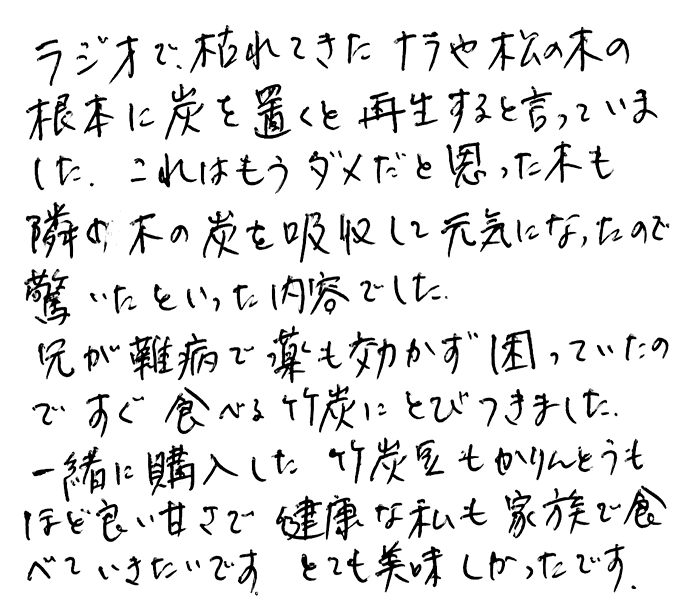 ラジオで、枯れてきたナラや松の木の
根本に炭を置くと再生すると言っていま
した。これはもうダメだと思った木も
隣の木の炭を吸収して元気になったので
驚いたといった内容でした。
兄が難病で薬も効かず困っていたの
ですぐ食べる竹炭にとびつきました。
一緒に購入した竹炭豆もかりんとうも
ほど良い甘さで健康な私も家族で食
べていきたいです。とても美味しかったです。